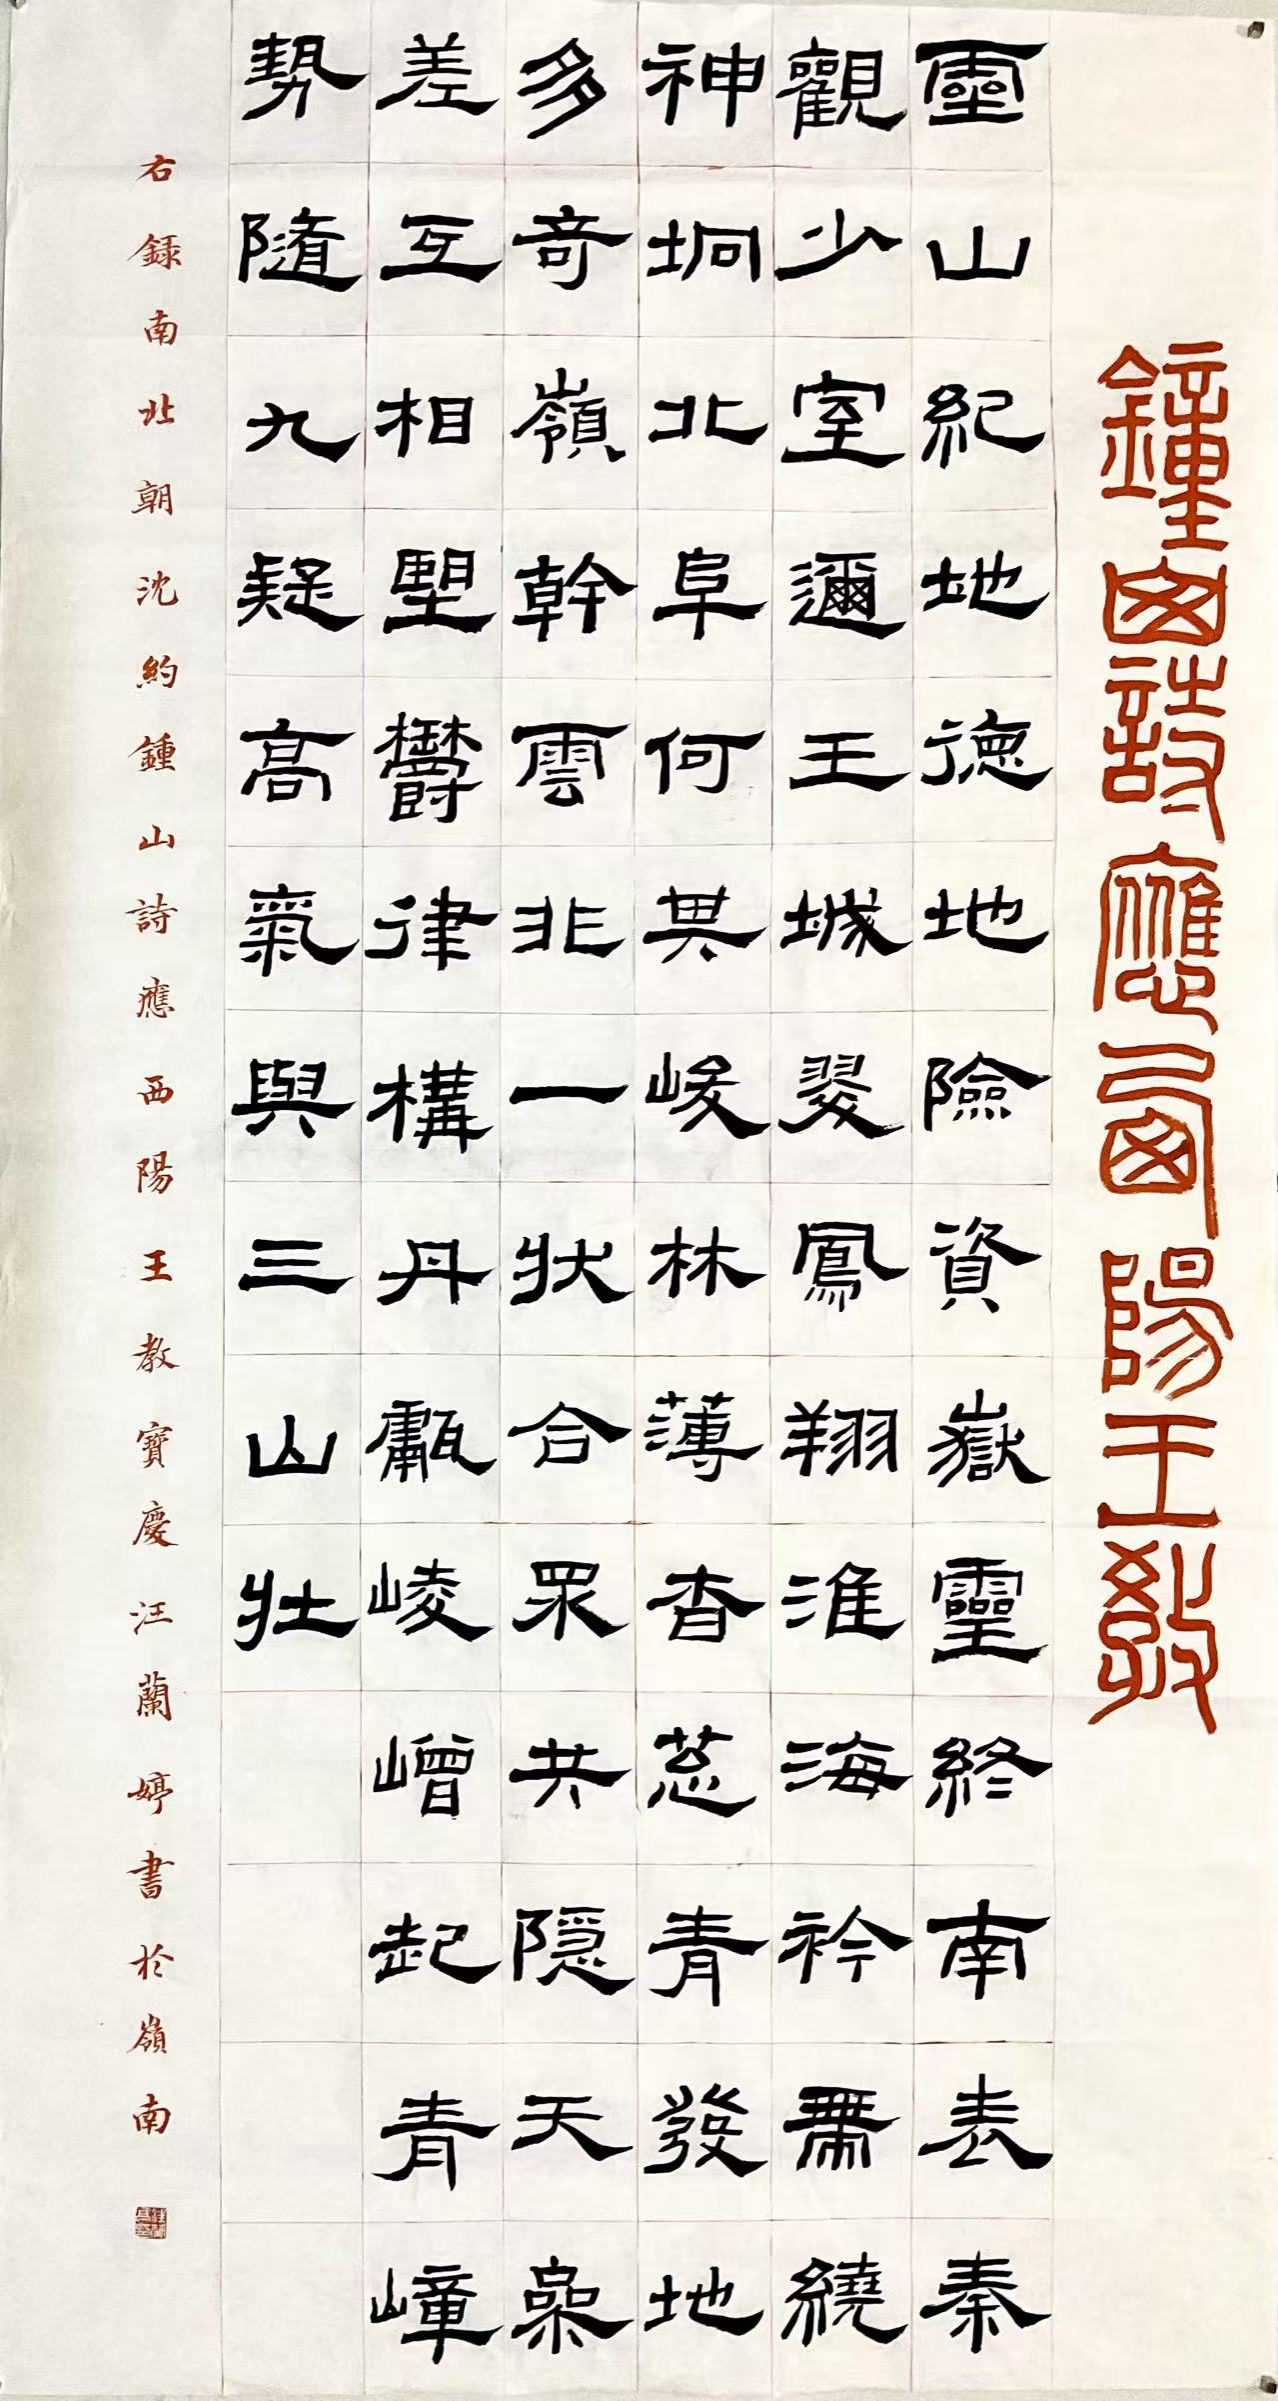 鐘山詩應西陽王教
靈山紀地德地險資嶽靈終南表秦
觀少室邇王城翠鳳翔淮海衿帶繞
神坰北阜何其峻林薄杳葱青發地
多奇嶺幹雲非一狀合眔共隱天參
差互相望鬱律構丹巘崚嶒起青嶂
勢隨九疑高氣與三山壯
右録南北朝沈約鍾山詩應西陽王教寶慶汪蘭婷書於嶺南